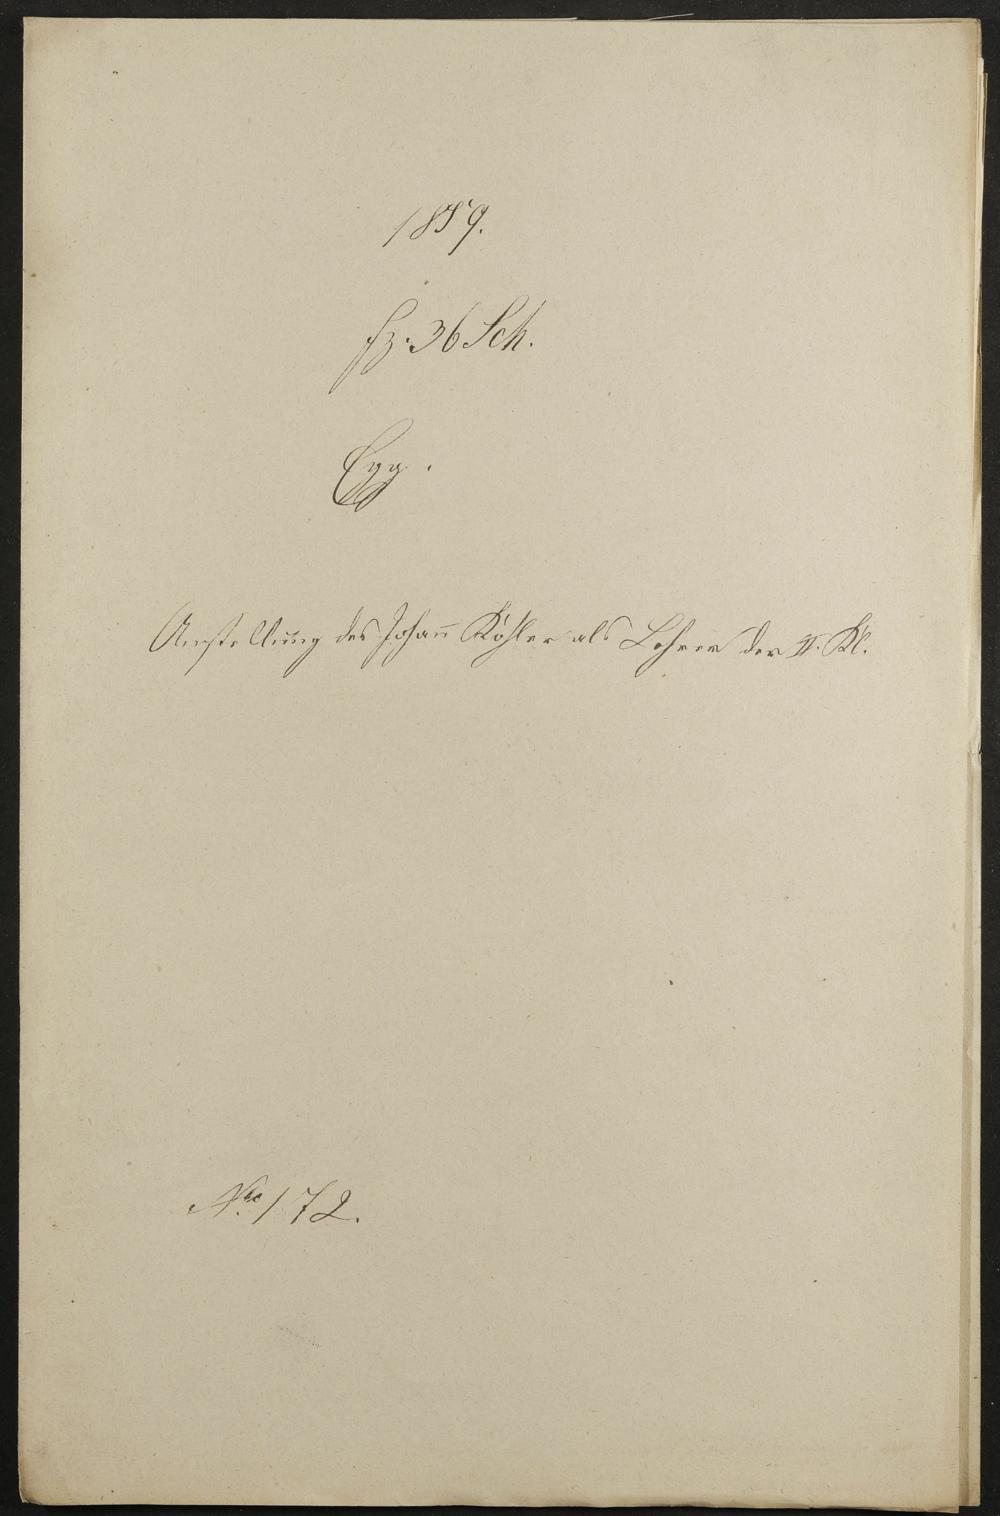 1859.
fz. 36 Sch.
Egg.
Anstellung des Johann Köhler als Lehrer der II. Kl.
No 172.